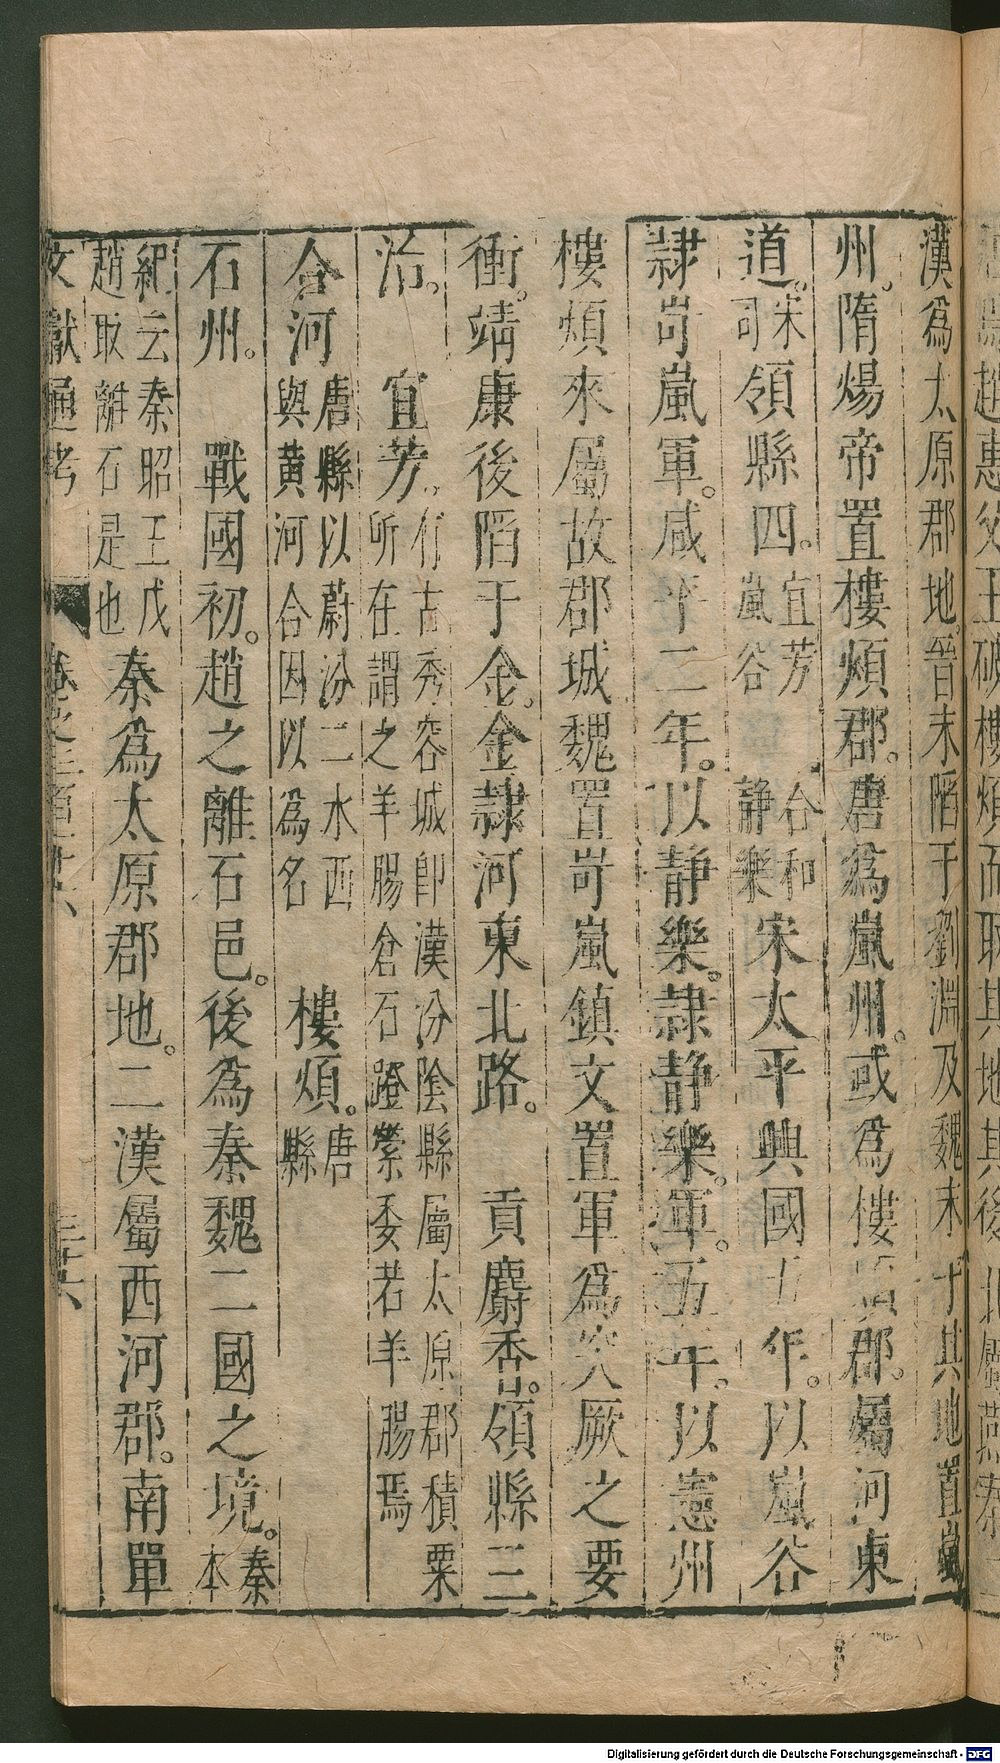 漢爲太原郡地晉末陷于劉淵及魏末于其地置嵐
州。隋煬帝置樓煩郡。唐爲嵐州。或爲樓煩郡。屬河東
道。宋司領縣四。宜芳嵐谷合和靜樂宋太平興國五年。以嵐谷
隸岢嵐軍。咸平二年。以靜樂。隸靜樂軍。五年。以憲州
樓煩來屬故郡城魏置岢嵐鎮文置軍爲突厥之要
衝。靖康後陷于金。金隸河東北路。 貢麝香。領縣三
治。 宜芳。有古秀容城卽漢汾陰縣屬太原郡積粟所在謂之羊腸倉石蹬縈委若羊腸焉
合河唐縣以蔚汾二水西與黃河合因以爲名 樓煩。唐縣
石州。 戰國初。趙之離石邑。後爲秦魏二國之境。秦本
紀云秦昭王戊趙取離石是也秦爲太原郡地。二漢屬西河郡。南單
文獻通考 卷之三百十六 三十六
Digitalisierung gefördert durch die Deutsche Forschungsgemeinschaft - DFG